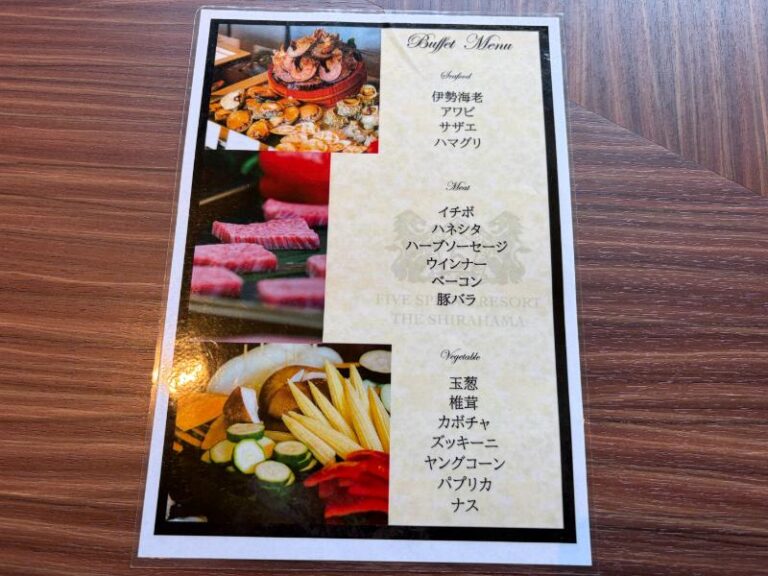 Buffet Menu
Seafood
伊勢海老
アワビ
サザエ
ハマグリ
Meat
イチボ
ハネシタ
ハーブソーセージ
ウインナー
ベーコン
豚バラ
FIVE SP RESORT
THE SHIRAHAMA
Vegetable
玉葱
椎茸
カボチャ
ズッキーニ
ヤングコーン
パプリカ
ナス